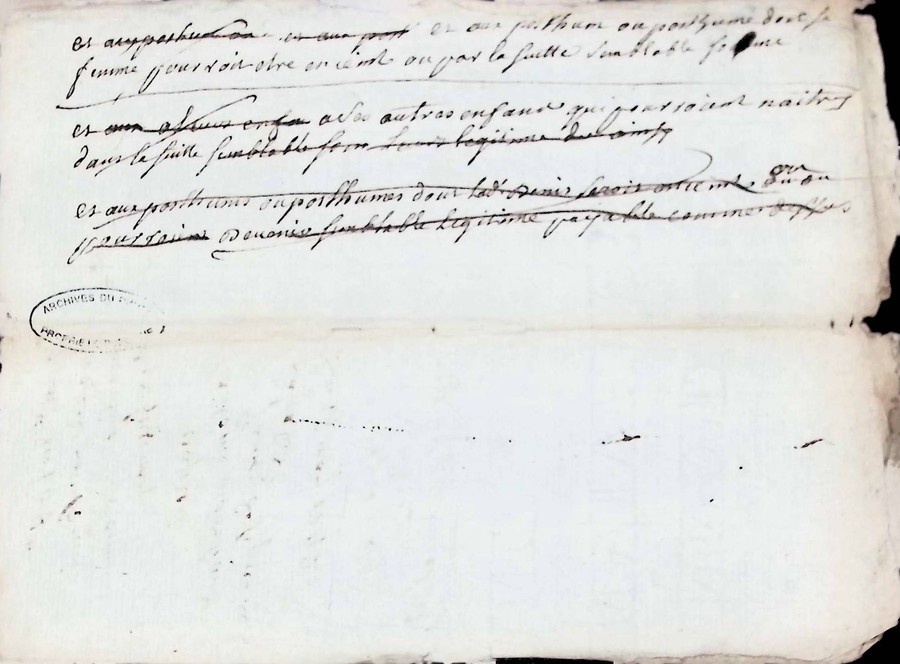 et aux posthum ou et aux post et aux posthum ou posthume dont sa
femme pourroit etre enceinte ou par la suitte semblable somme
et aux a ses enfa a ses autres enfans qui pourroient naitre
dans la suitte semblable som leurs legitime de
et aux posthumes ou posthumes dont lad. Denis seroit enceinte ou
pourroient devenir semblable legitime payable comme dessus
ARCHIVES DU
PROPRIETE